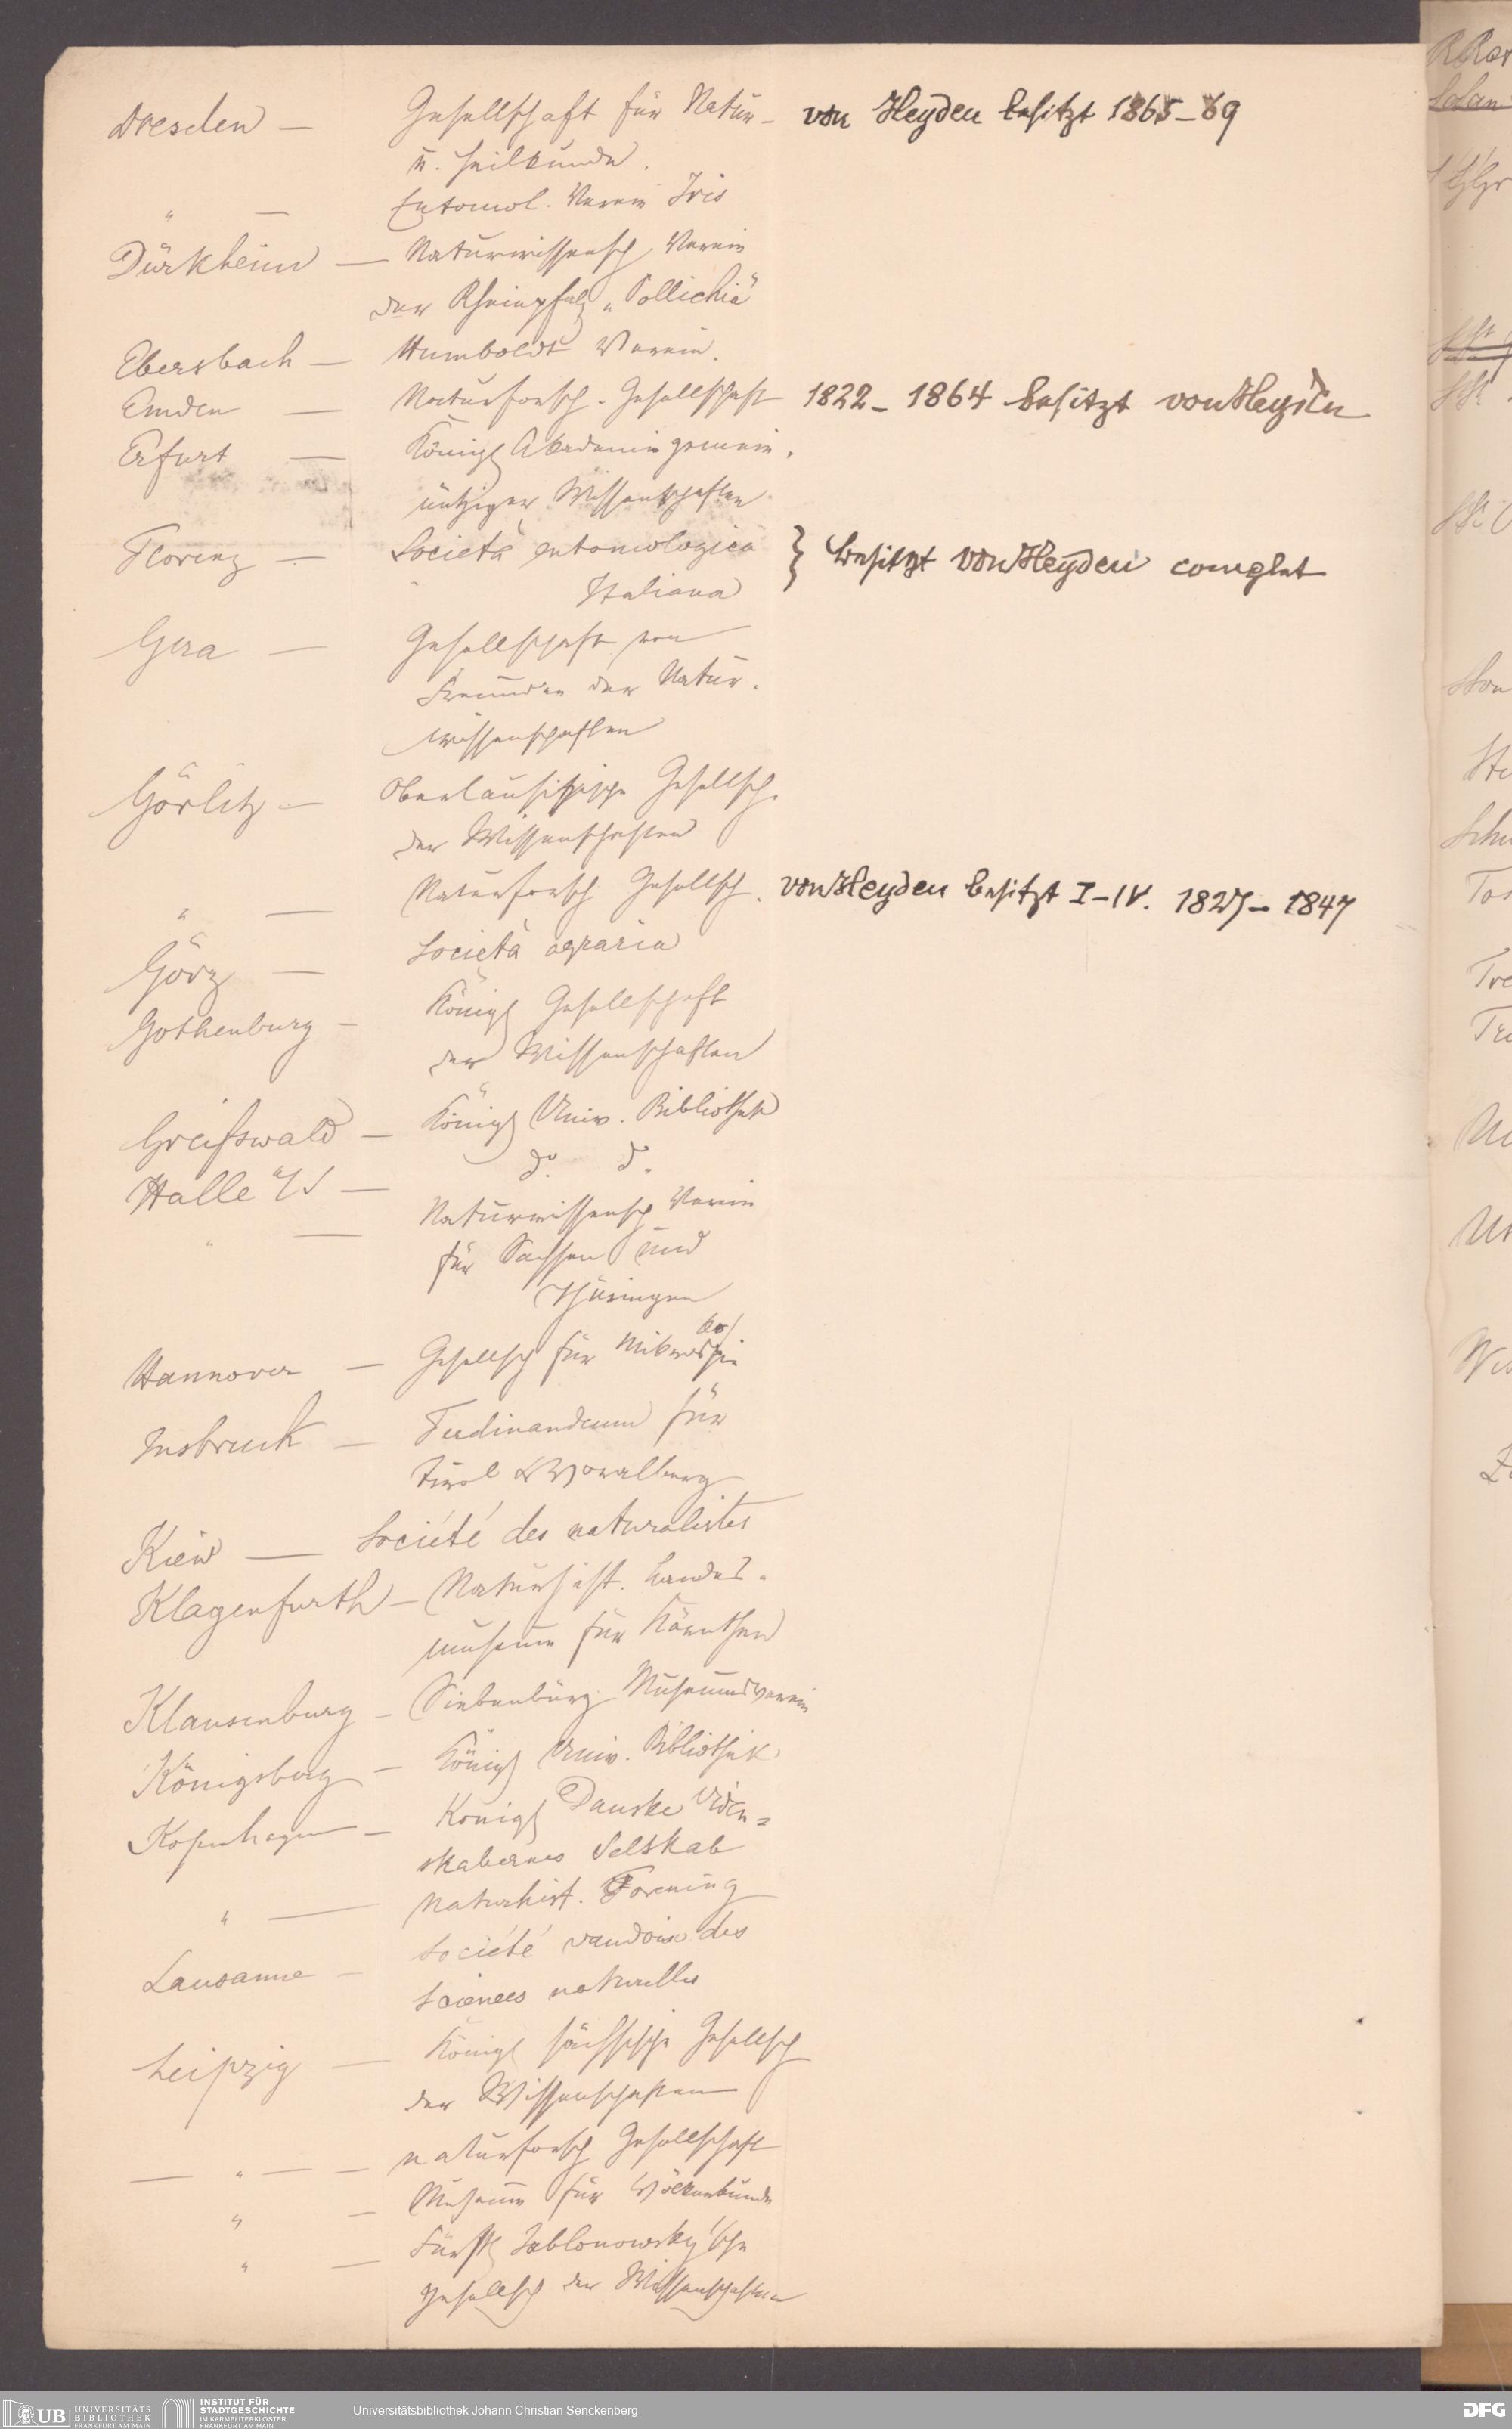 Dresden — Gesellschaft für Natur- von Heyden besitzt 1865–69
u. Heilkunde.
" — Entomol. Verein Iris
Dürkheim — Naturwissensch. Verein
der Rheinpfalz „Pollichia"
Ebersbach — Humboldt Verein.
Emden — Naturforsch. Gesellschaft 1822–1864 besitzt von Heyden
Erfurt — Königl Akademie gemein-
nütziger Wissenschaften
Florenz — Società entomologica } besitzt von Heyden complet
Italiana
Gera — Gesellschaft von
Freunden der Natur-
wissenschaften
Görlitz — Oberlausitzische Gesellsch.
der Wissenschaften
" — Naturforsch Gesellsch. von Heyden besitzt I–IV. 1827–1847
Görz — Società agraria
Gothenburg — Königl Gesellschaft
der Wissenschaften
Greifswald — Königl Univ. Bibliothek
Halle a/S — do. do.
" — Naturwissensch Verein
für Sachsen und
Thüringen
Hannover — Gesellsch für Mikroskopie
Insbruck — Ferdinandeum für
Tirol & Vorarlberg
Kiew — Société des naturalistes
Klagenfurth — Naturhist. Landes-
museum für Kärnthen
Klausenburg — Siebenbürg. Museumsverein
Königsberg — Königl Univ. Bibliothek
Kopenhagen — Königl Danske Viden=
skabernes Selskab
" — Naturhist. Forening
Lausanne — Société vaudoise des
Sciences naturelles
Leipzig — Königl sächsische Gesellsch
der Wissenschaften
— " — — naturforsch Gesellschaft
" — Museum für Völkerkunde
" — Fürstl Jablonowsky'sche
Gesellsch der Wissenschaften
UB UNIVERSITÄTS
BIBLIOTHEK
FRANKFURT AM MAIN
INSTITUT FÜR
STADTGESCHICHTE
IM KARMELITERKLOSTER
FRANKFURT AM MAIN
Universitätsbibliothek Johann Christian Senckenberg
DFG